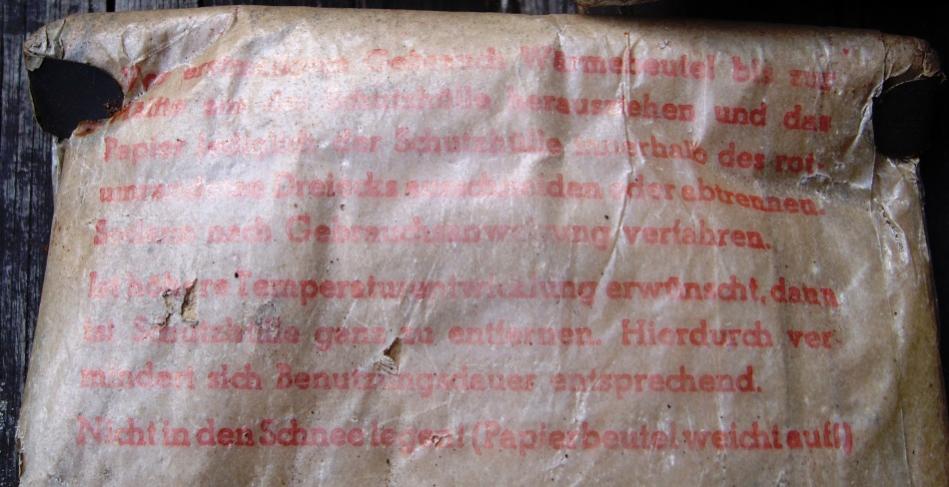 Vor erstmaligem Gebrauch Wärmebeutel bis zur
Hälfte aus der Schutzhülle herausziehen und das
Papier lediglich der Schutzhülle innerhalb des rot-
umrandeten Dreiecks ausschneiden oder abtrennen.
Sodann nach Gebrauchsanweisung verfahren.
Ist höhere Temperaturentwicklung erwünscht, dann
ist Schutzhülle ganz zu entfernen. Hierdurch ver-
mindert sich Benutzungsdauer entsprechend.
Nicht in den Schnee legen! (Papierbeutel weicht auf!)